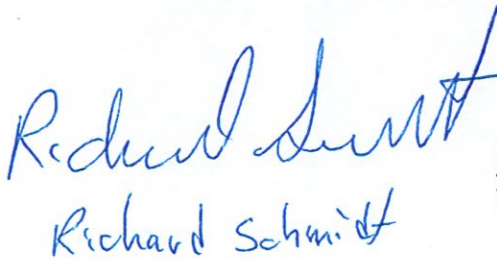 Richard Schmidt
Richard Schmidt